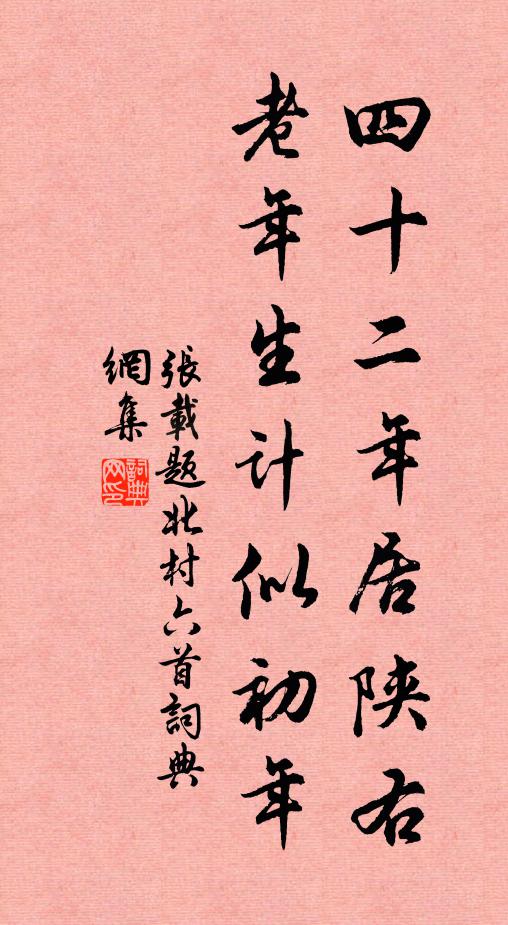 四十二年居陝右
老年生计似初年
張載题北村六首詞典
網集
詞典
网印